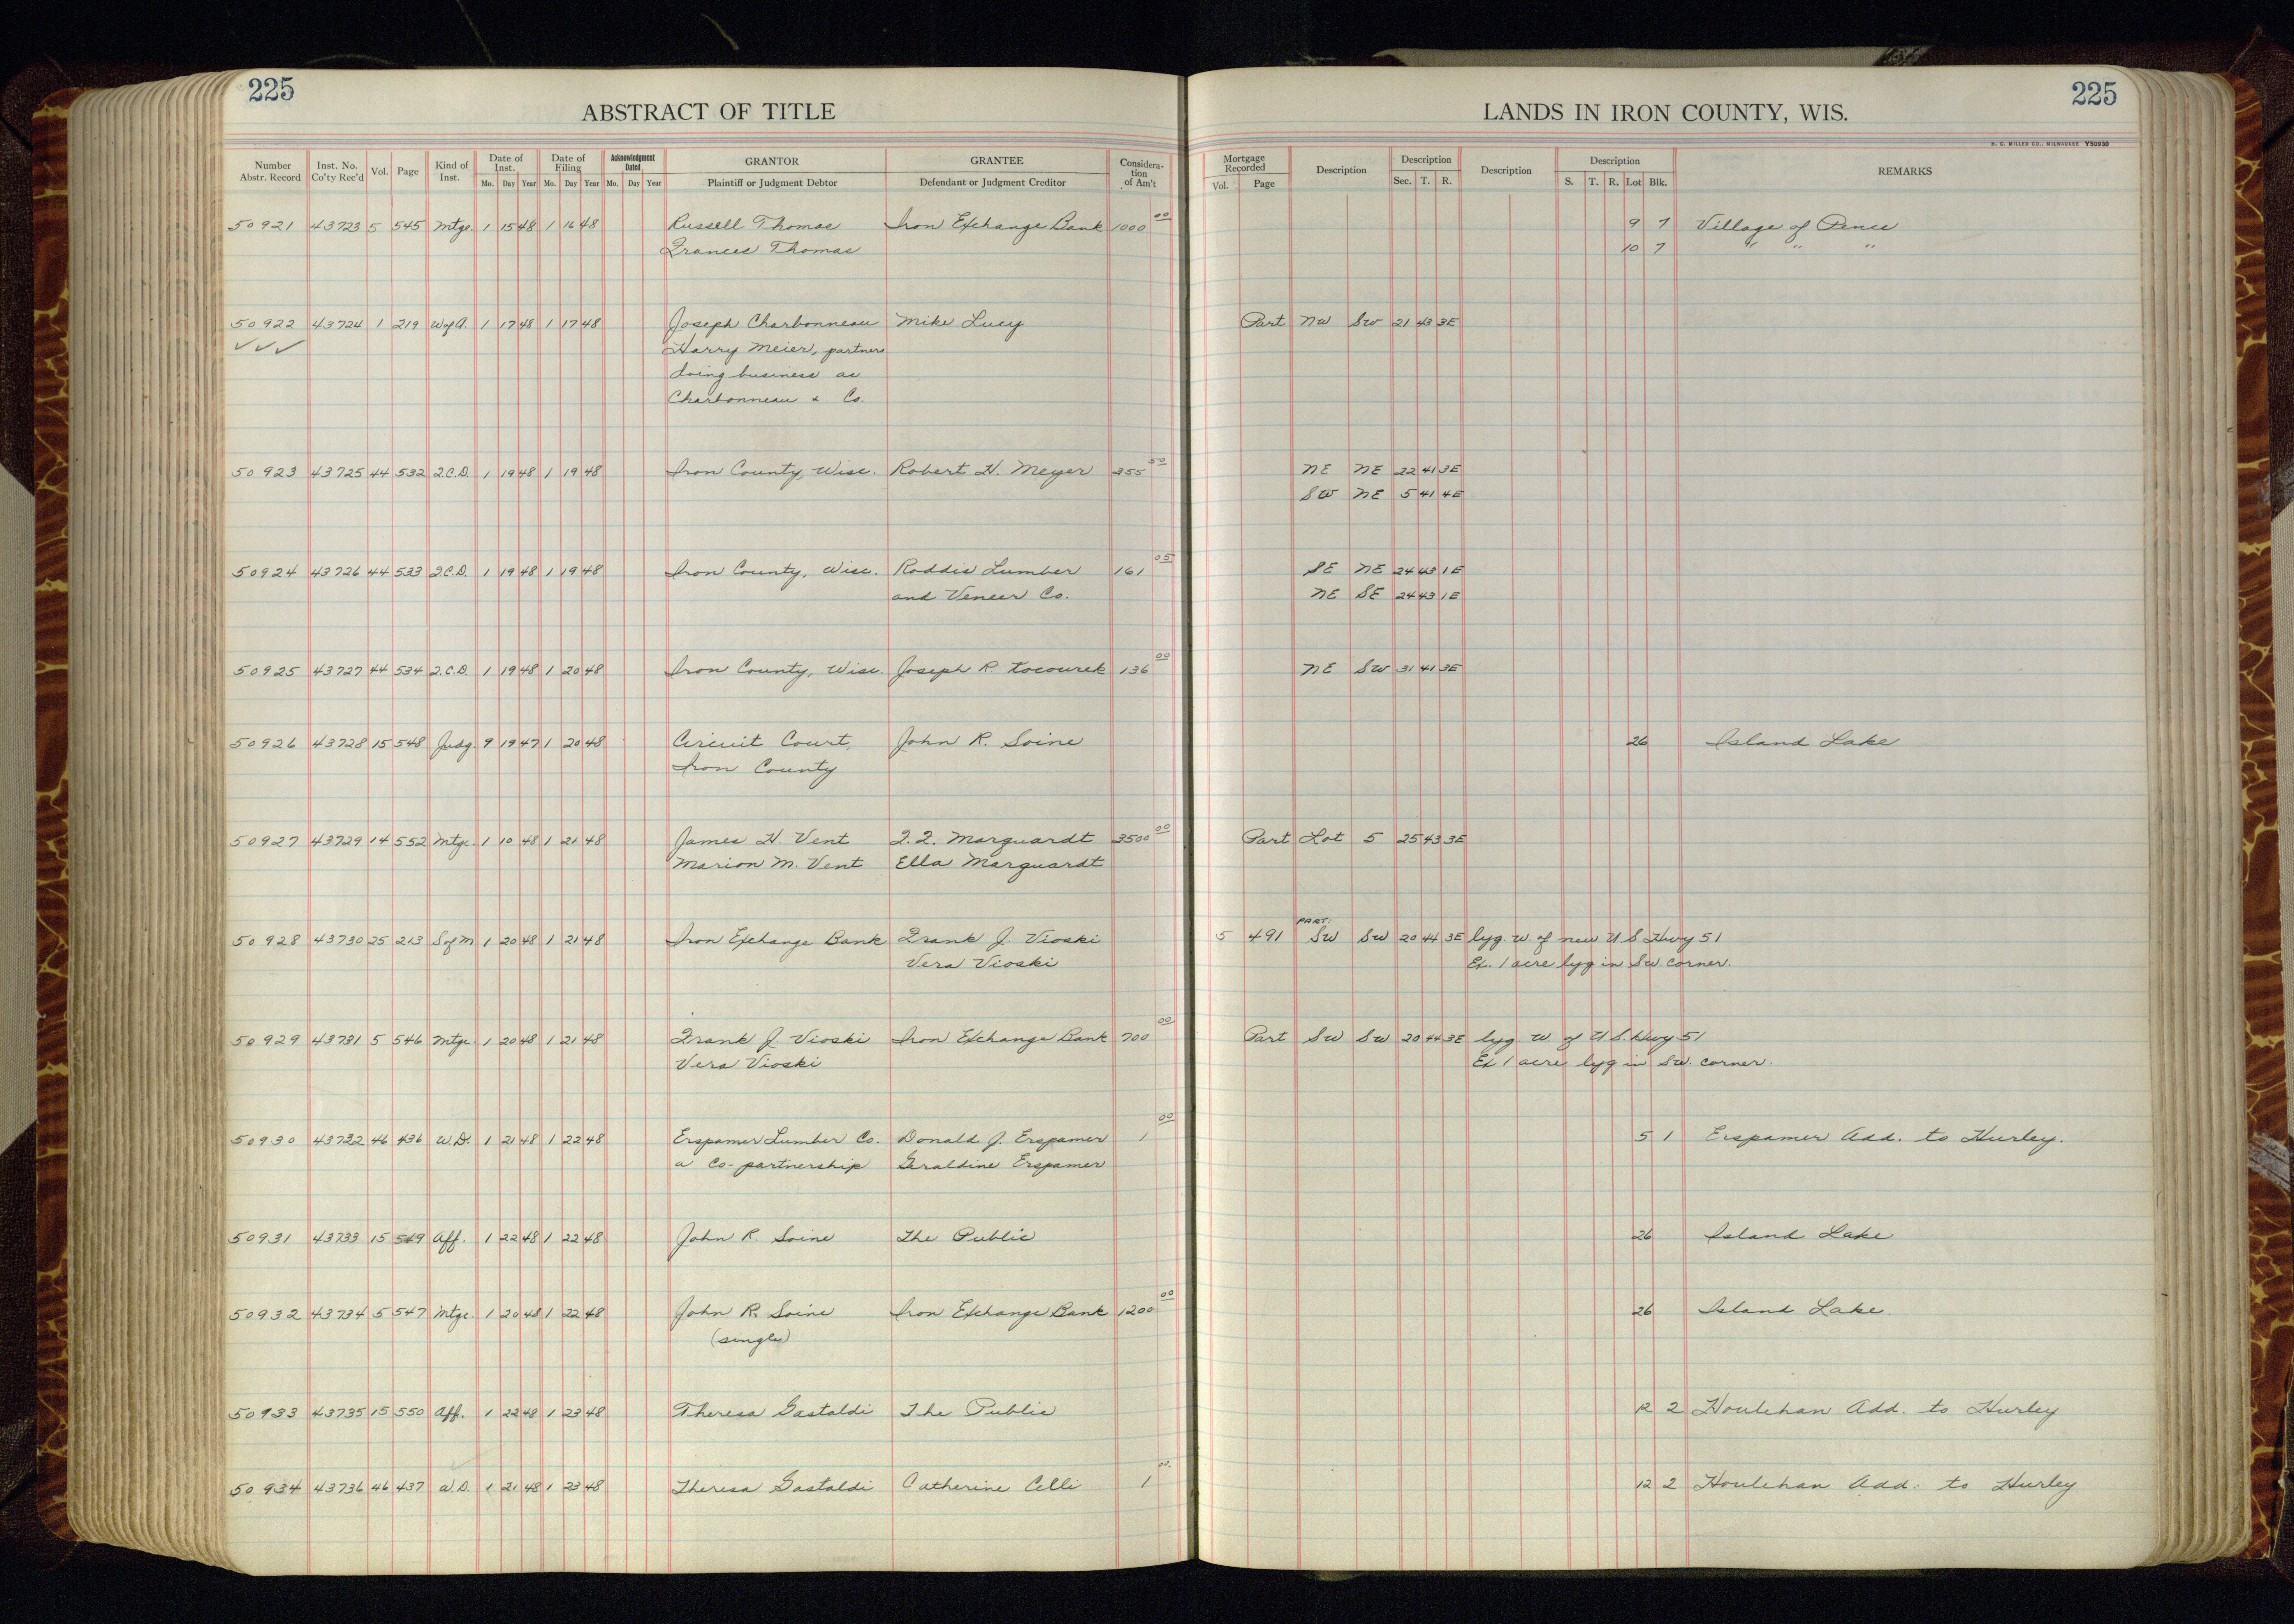 225
ABSTRACT OF TITLE
LANDS IN IRON COUNTY, WIS.
225
H. C. MILLER CO., MILWAUKEE V50930
Number Abstr. Record Inst. No. Co'ty Rec'd Vol. Page Kind of Inst. Date of Inst. Mo. Day Year Date of Filing Mo. Day Year Acknowledgment Dated Mo. Day Year GRANTOR Plaintiff or Judgment Debtor GRANTEE Defendant or Judgment Creditor Considera-tion of Am't Mortgage Recorded Vol. Page Description Description Sec. T. R. Description Description S. T. R. Lot Blk. REMARKS
50921 43723 5 545 Mtge. 1 15 48 1 16 48 Russell Thomas Iron Exchange Bank 1000 00 9 7 Village of Pence
Frances Thomas 10 7 " " "
50922 43724 1 219 W of A. 1 17 48 1 17 48 Joseph Charbonneau Mike Lucy Part NW SW 21 43 3E
✓✓✓ Harry Meier, partners
doing business as
Charbonneau + Co.
50923 43725 44 532 T.C.D. 1 19 48 1 19 48 Iron County, Wisc. Robert H. Meyer 355 50 NE NE 22 41 3E
SW NE 5 41 4E
50924 43726 44 533 T.C.D. 1 19 48 1 19 48 Iron County, Wisc. Roddis Lumber 161 05 SE NE 24 43 1E
and Veneer Co. NE SE 24 43 1E
50925 43727 44 534 T.C.D. 1 19 48 1 20 48 Iron County, Wisc. Joseph R. Kocourek 136 00 NE SW 31 41 3E
50926 43728 15 548 Judg. 9 19 47 1 20 48 Circuit Court, John R. Soine 26 Island Lake
Iron County
50927 43729 14 552 Mtge. 1 10 48 1 21 48 James H. Vent F.F. Marquardt 3500 00 Part Lot 5 25 43 3E
Marion M. Vent Ella Marquardt
50928 43730 25 213 S of M 1 20 48 1 21 48 Iron Exchange Bank Frank J. Vioski 5 491 PART: SW SW 20 44 3E lyg. W. of new U.S. Hwy 51
Vera Vioski Ex. 1 acre lyg in SW. corner.
50929 43731 5 546 Mtge. 1 20 48 1 21 48 Frank J. Vioski Iron Exchange Bank 700 00 Part SW SW 20 44 3E lyg W. of U.S. Hwy 51
Vera Vioski Ex 1 acre lyg in SW. corner.
50930 43732 46 436 W.D. 1 21 48 1 22 48 Erspamer Lumber Co. Donald J. Erspamer 1 00 5 1 Erspamer Add. to Hurley.
a Co-partnership Geraldine Erspamer
50931 43733 15 549 Aff. 1 22 48 1 22 48 John R. Soine The Public 26 Island Lake
50932 43734 5 547 Mtge. 1 20 48 1 22 48 John R. Soine Iron Exchange Bank 1200 00 26 Island Lake.
(single)
50933 43735 15 550 Aff. 1 22 48 1 23 48 Theresa Gastaldi The Public 12 2 Houlehan Add. to Hurley
50934 43736 46 437 W.D. 1 21 48 1 23 48 Theresa Gastaldi Catherine Celli 1 00 12 2 Houlehan Add. to Hurley